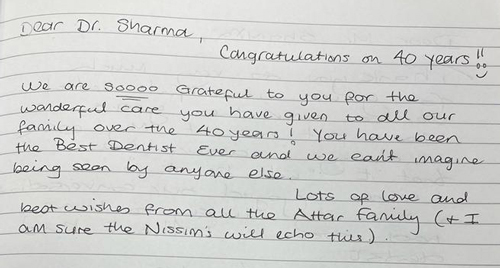 Dear Dr. Sharma,
Congratulations on 40 years!!
We are soooo Grateful to you for the
wonderful care you have given to all our
family over the 40 years! You have been
the Best Dentist Ever and we can't imagine
being seen by anyone else.
Lots of love and
best wishes from all the Attar Family (+ I
am sure the Nissim's will echo this).